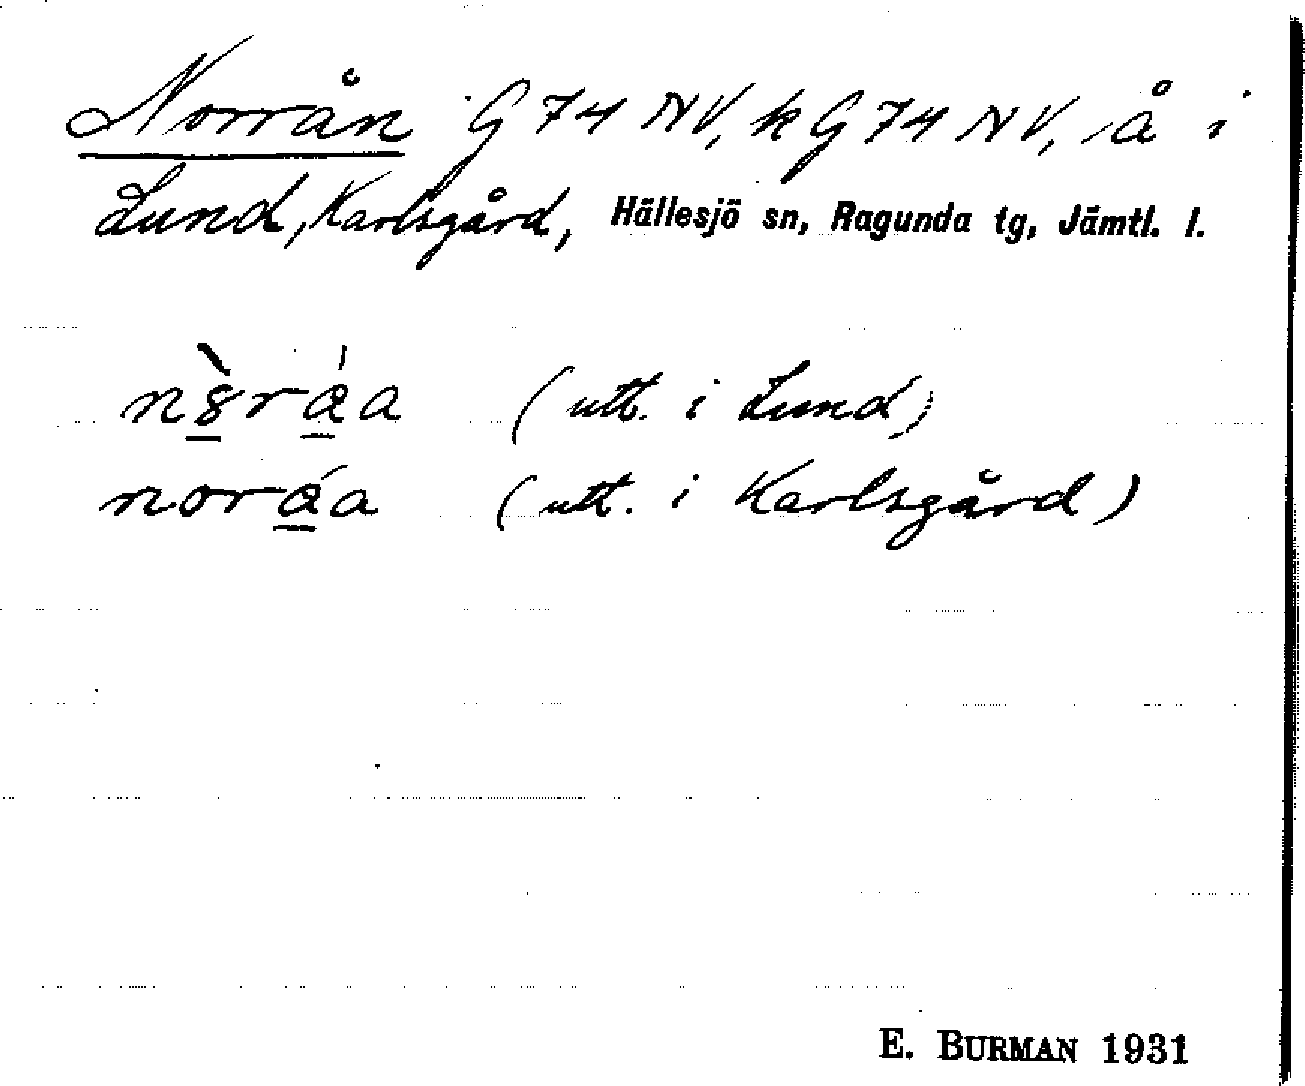 Norrån G 74 NV, k G 74 NV, å i
Lund, Karlsgård, Hällesjö sn, Ragunda tg, Jämtl. l.
(utt. i Lund)
noráa (utt. i Karlsgård)
E. BURMAN 1931